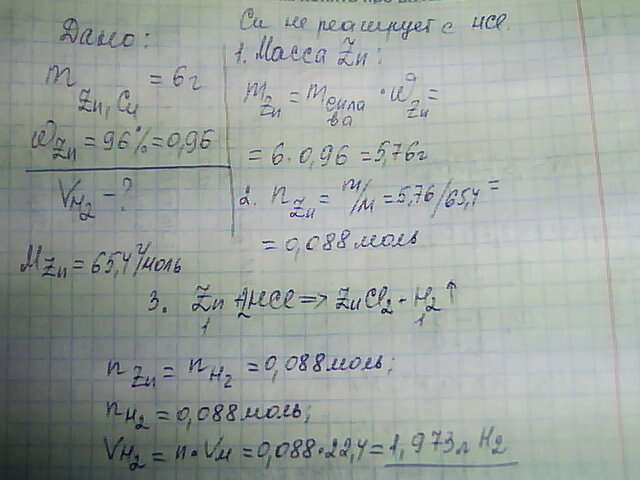 Дано:
m Zn, Cu = 6 г
ω Zn = 96% = 0,96
V H2 - ?
M Zn = 65,4 г/моль
Cu не реагирует с HCl.
1. Масса Zn:
m Zn = m сплава · ω Zn =
= 6 · 0,96 = 5,76 г
2. n Zn = m/M = 5,76/65,4 =
= 0,088 моль
3. Zn + 2HCl => ZnCl2 - H2↑
1 1
n Zn = n H2 = 0,088 моль;
n H2 = 0,088 моль;
V H2 = n · Vм = 0,088 · 22,4 = 1,973 л H2